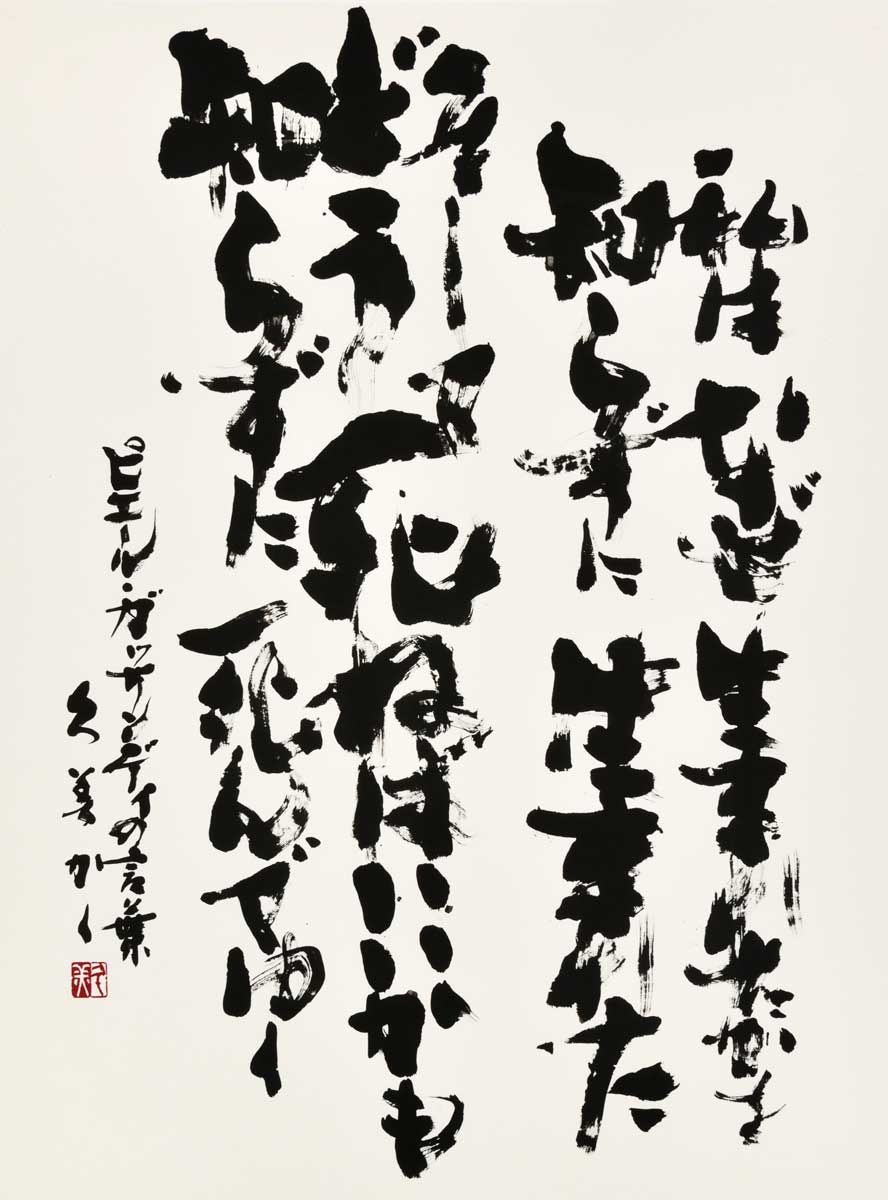 私はなぜ生まれたかを
知らずに生まれた
そして
どう死ねばいいかも
知らずに死んでゆく
ピエール・ガッサンディの言葉
久美かく